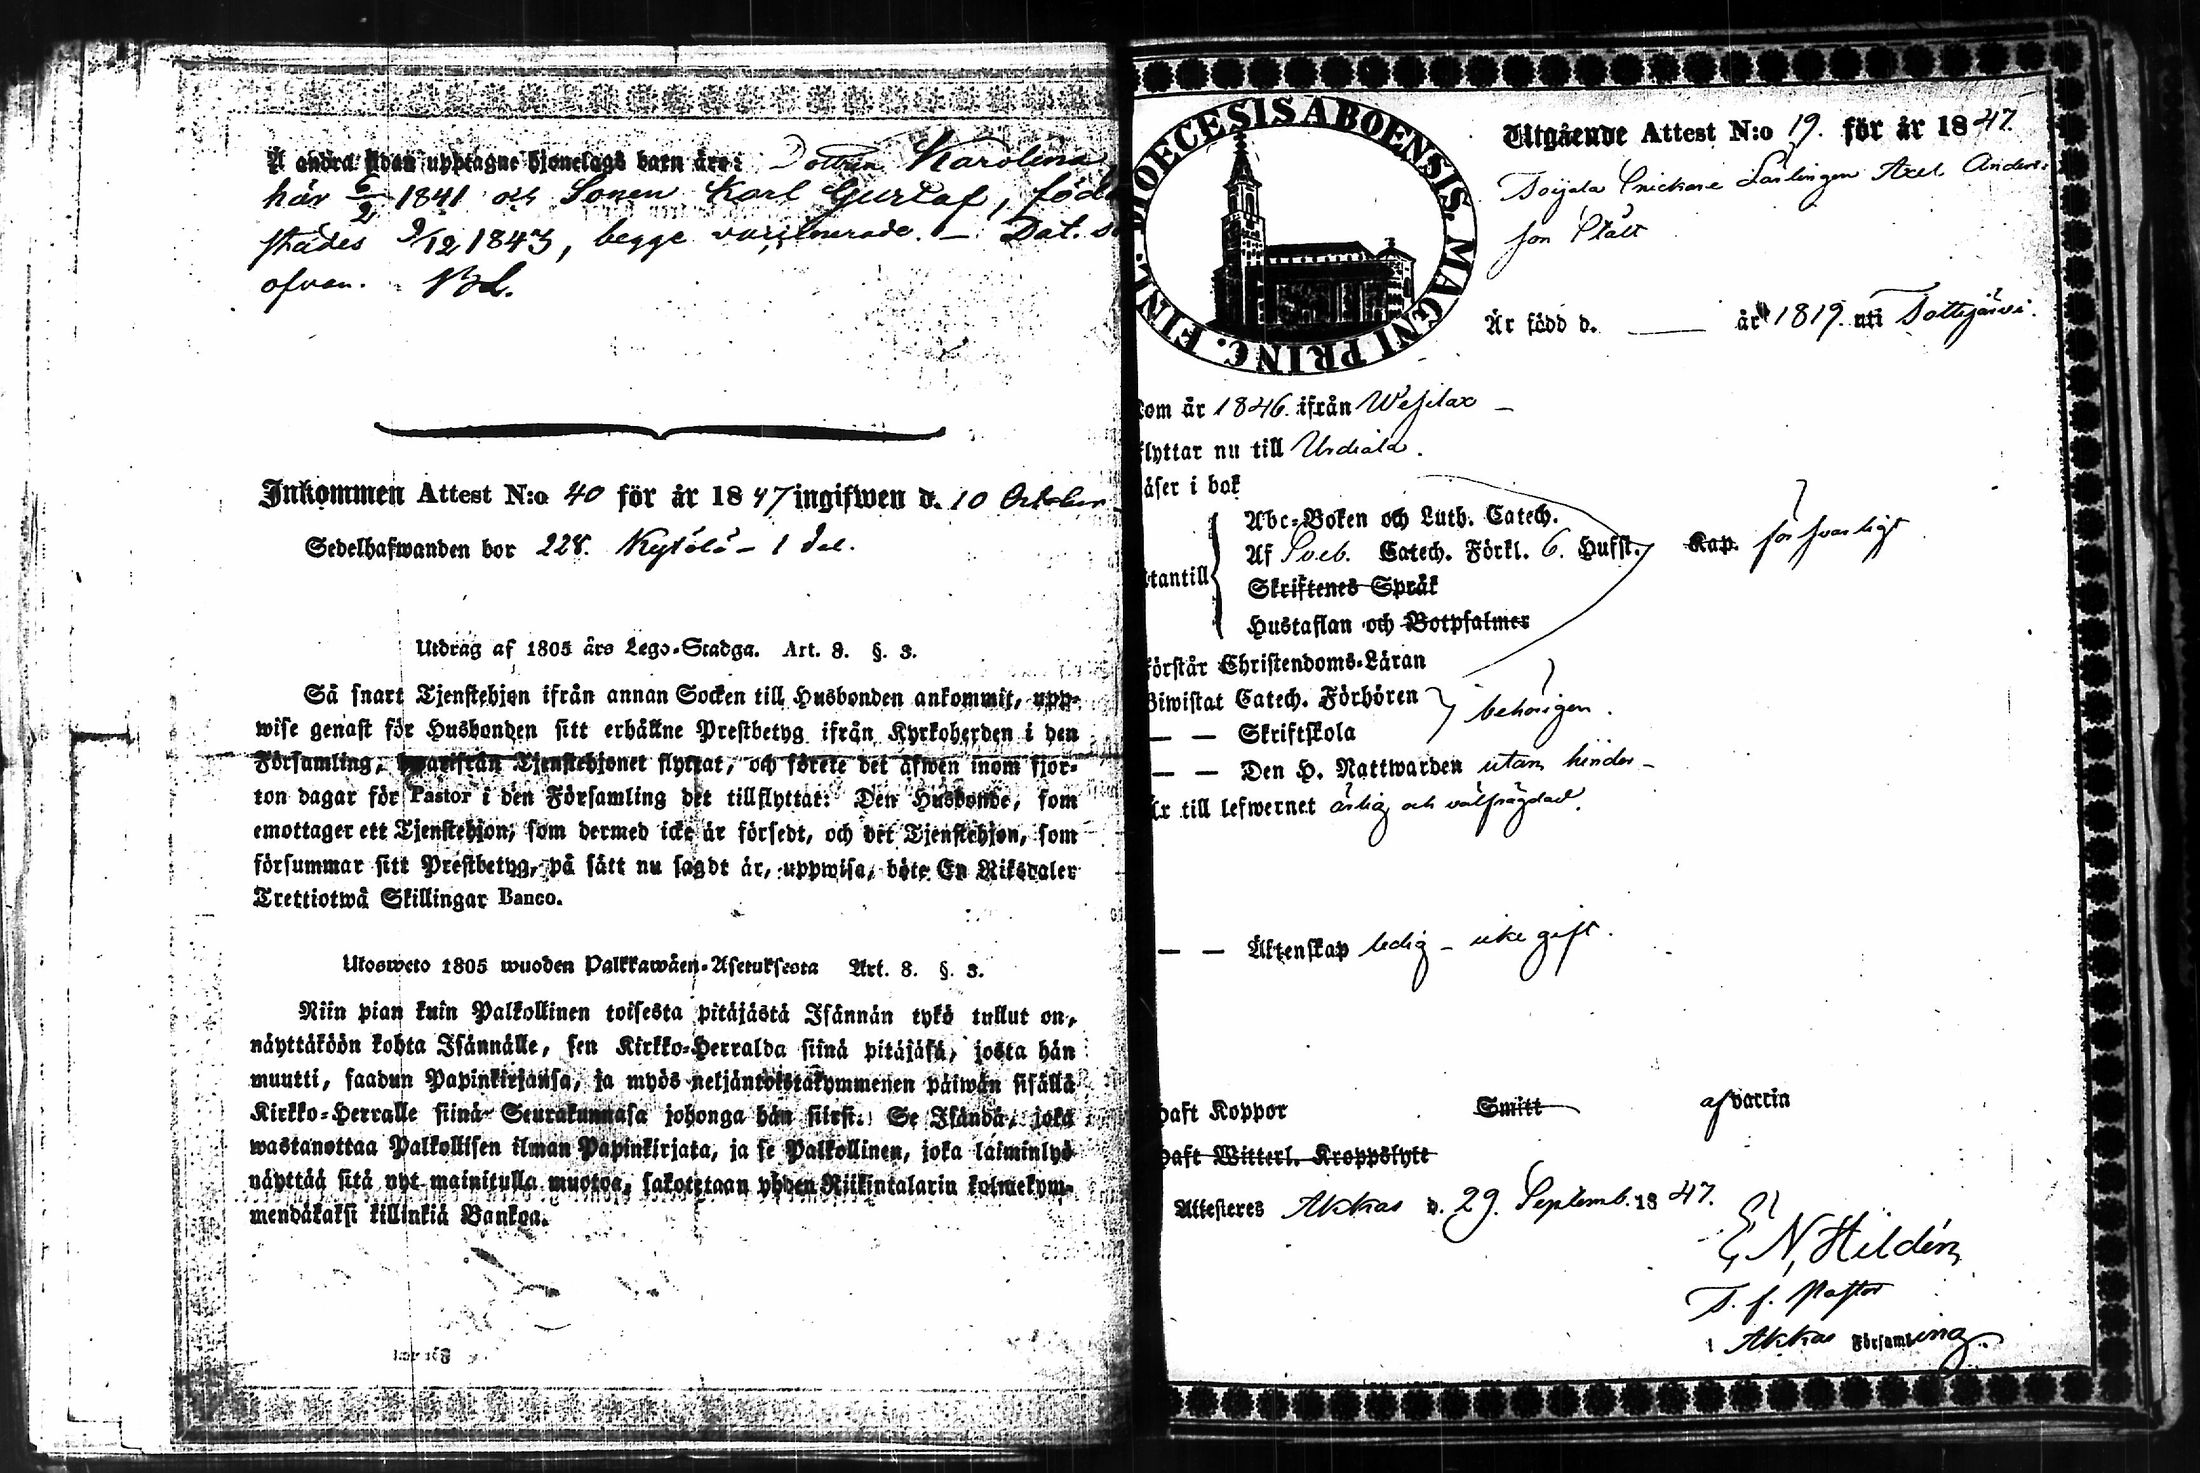 Å andra sidan upptagne hjonelags barn äro: Dottren Karolina
här 6/2 1841 och Sonen Karl Gustaf, född
städes 9/12 1843, begge vaccinerade. — Dat. s
ofvan.
Inkommen Attest N:o 40 för år 1847 ingifwen d. 10 October
Sedelhafwanden bor 228. Kylölö — 1 del.
Utdrag af 1805 års Lego-Stadga. Art. 8. §. 3.
Så snart Tjenstehjon ifrån annan Socken till Husbonden ankommit, upp-
wise genast för Husbonden sitt erhållne Prestbetyg ifrån Kyrkoherden i den
Församling, hwarifrån Tjenstehjonet flyttat, och förete det äfwen inom fjor-
ton dagar för Pastor i den Församling det tillflyttat: Den Husbonde, som
emottager ett Tjenstehjon, som dermed icke är försedt, och det Tjenstehjon, som
försummar sitt Prestbetyg, på sätt nu sagdt är, uppwisa, böte En Riksdaler
Trettiotwå Skillingar Banco.
Ulosweto 1805 wuoden Palkkawäen-Asetuksesta Art. 8. §. 3.
Niin pian kuin Palkollinen toisesta pitäjästä Isännän tykö tullut on,
näyttäköön kohta Isännälle, sen Kirkko-Herralda siinä pitäjäsä, josta hän
muutti, saadun Papinkirjansa, ja myös neljäntoistakymmenen päiwän sisällä
Kirkko-Herralle siinä Seurakunnasa johonga hän siirsi. Se Isändä, joka
wastanottaa Palkollisen ilman Papinkirjata, ja se Palkollinen, joka laiminlyö
näyttää sitä nyt mainitulla muotoa, sakotetaan yhden Riikintalarin kolmekym-
mendäkaksi killinkiä Bankoa.
DIOECESIS ABOENSIS. MAGNI PRINC. FINL.
Utgående Attest N:o 19. för år 1847.
Toijala Snickare Lärlingen Axel Anders-
son Stålt
Är född d. — år 1819. uti Tottijärvi.
kom år 1846. ifrån Wesilax —
flyttar nu till Urdiala.
läser i bok
Abc-Boken och Luth. Catech.
Af Sveb. Catech. Förkl. 6. Hufst. Kap. försvarligt
utantill
Skriftenes Språk
Hustaflan och Botpsalmer
förstår Christendoms-Läran
Biwistat Catech. Förhören behörigen.
— — Skriftskola
— — Den H. Nattwarden utan hinder —
Är till lefwernet ärlig och välfrägdad.
— — Äktenskap ledig — icke gift.
haft Koppor Smitt af vaccin
haft Witterl. Kroppslyte
Attesteres Akkas d. 29. Septemb. 1847.
E N Hildén
T. f. Pastor
i Akkas Församling